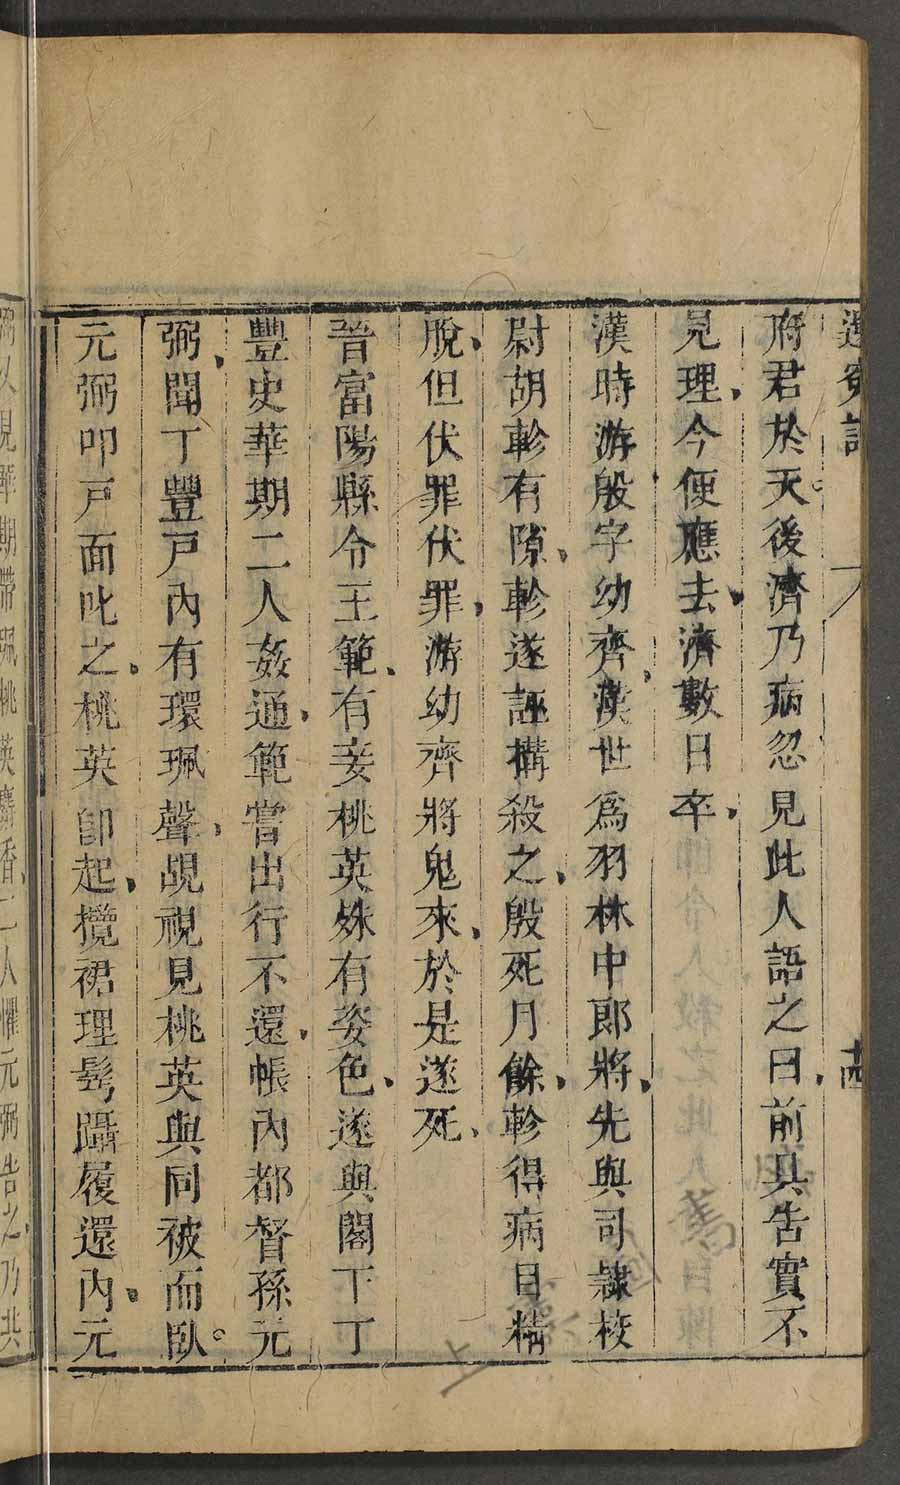 還冤記 十四
府君於天後濟乃病忽見此人語之曰前具告實不
見理今便應去濟數日卒
漢時游殷字幼齊漢世爲羽林中郎將先與司隸校
尉胡軫有隙軫遂誣構殺之殷死月餘軫得病目精
脫但伏罪伏罪游幼齊將鬼來於是遂死
晉富陽縣令王範有妾桃英殊有姿色遂與閣下丁
豐史華期二人姦通範嘗出行不還帳內都督孫元
弼聞丁豐戶內有環珮聲覘視見桃英與同被而臥
元弼叩戶面叱之桃英卽起攬裙理鬓躡履還內元
弼又見華期帶珮桃英麝香二人懼元弼告之乃共
上